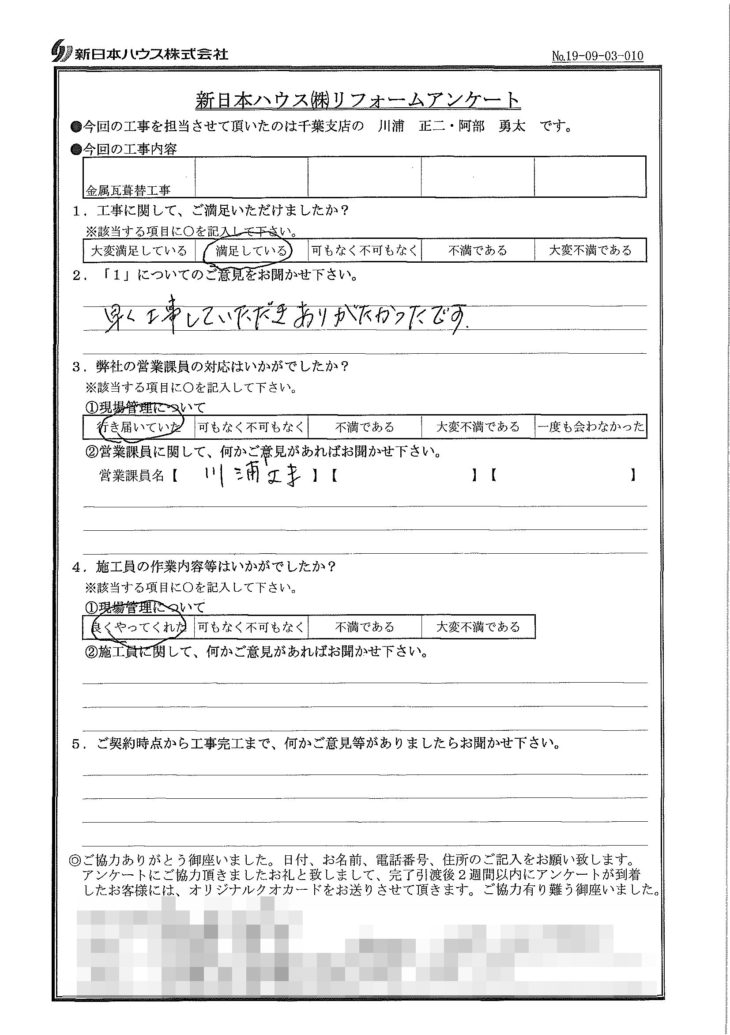 新日本ハウス株式会社
No.19-09-03-010
新日本ハウス㈱リフォームアンケート
●今回の工事を担当させて頂いたのは千葉支店の 川浦 正二・阿部 勇太 です。
●今回の工事内容
金属瓦葺替工事
1．工事に関して、ご満足いただけましたか？
※該当する項目に○を記入して下さい。
大変満足している 満足している 可もなく不可もなく 不満である 大変不満である
2．「1」についてのご意見をお聞かせ下さい。
早く工事していただきありがたかったです.
3．弊社の営業課員の対応はいかがでしたか？
※該当する項目に○を記入して下さい。
①現場管理について
行き届いていた 可もなく不可もなく 不満である 大変不満である 一度も会わなかった
②営業課員に関して、何かご意見があればお聞かせ下さい。
営業課員名【 川浦 】【 】【 】
4．施工員の作業内容等はいかがでしたか？
※該当する項目に○を記入して下さい。
①現場管理について
良くやってくれた 可もなく不可もなく 不満である 大変不満である
②施工員に関して、何かご意見があればお聞かせ下さい。
5．ご契約時点から工事完工まで、何かご意見等がありましたらお聞かせ下さい。
◎ご協力ありがとう御座いました。日付、お名前、電話番号、住所のご記入をお願い致します。
アンケートにご協力頂きましたお礼と致しまして、完了引渡後２週間以内にアンケートが到着
したお客様には、オリジナルクオカードをお送りさせて頂きます。ご協力有り難う御座いました。